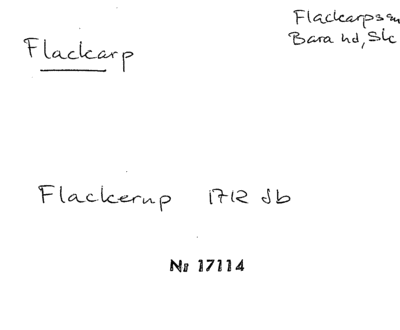 Flackarp
Flackarps sn
Bara hd, Sk
Flackerup 1712 Jb
Nº 17114